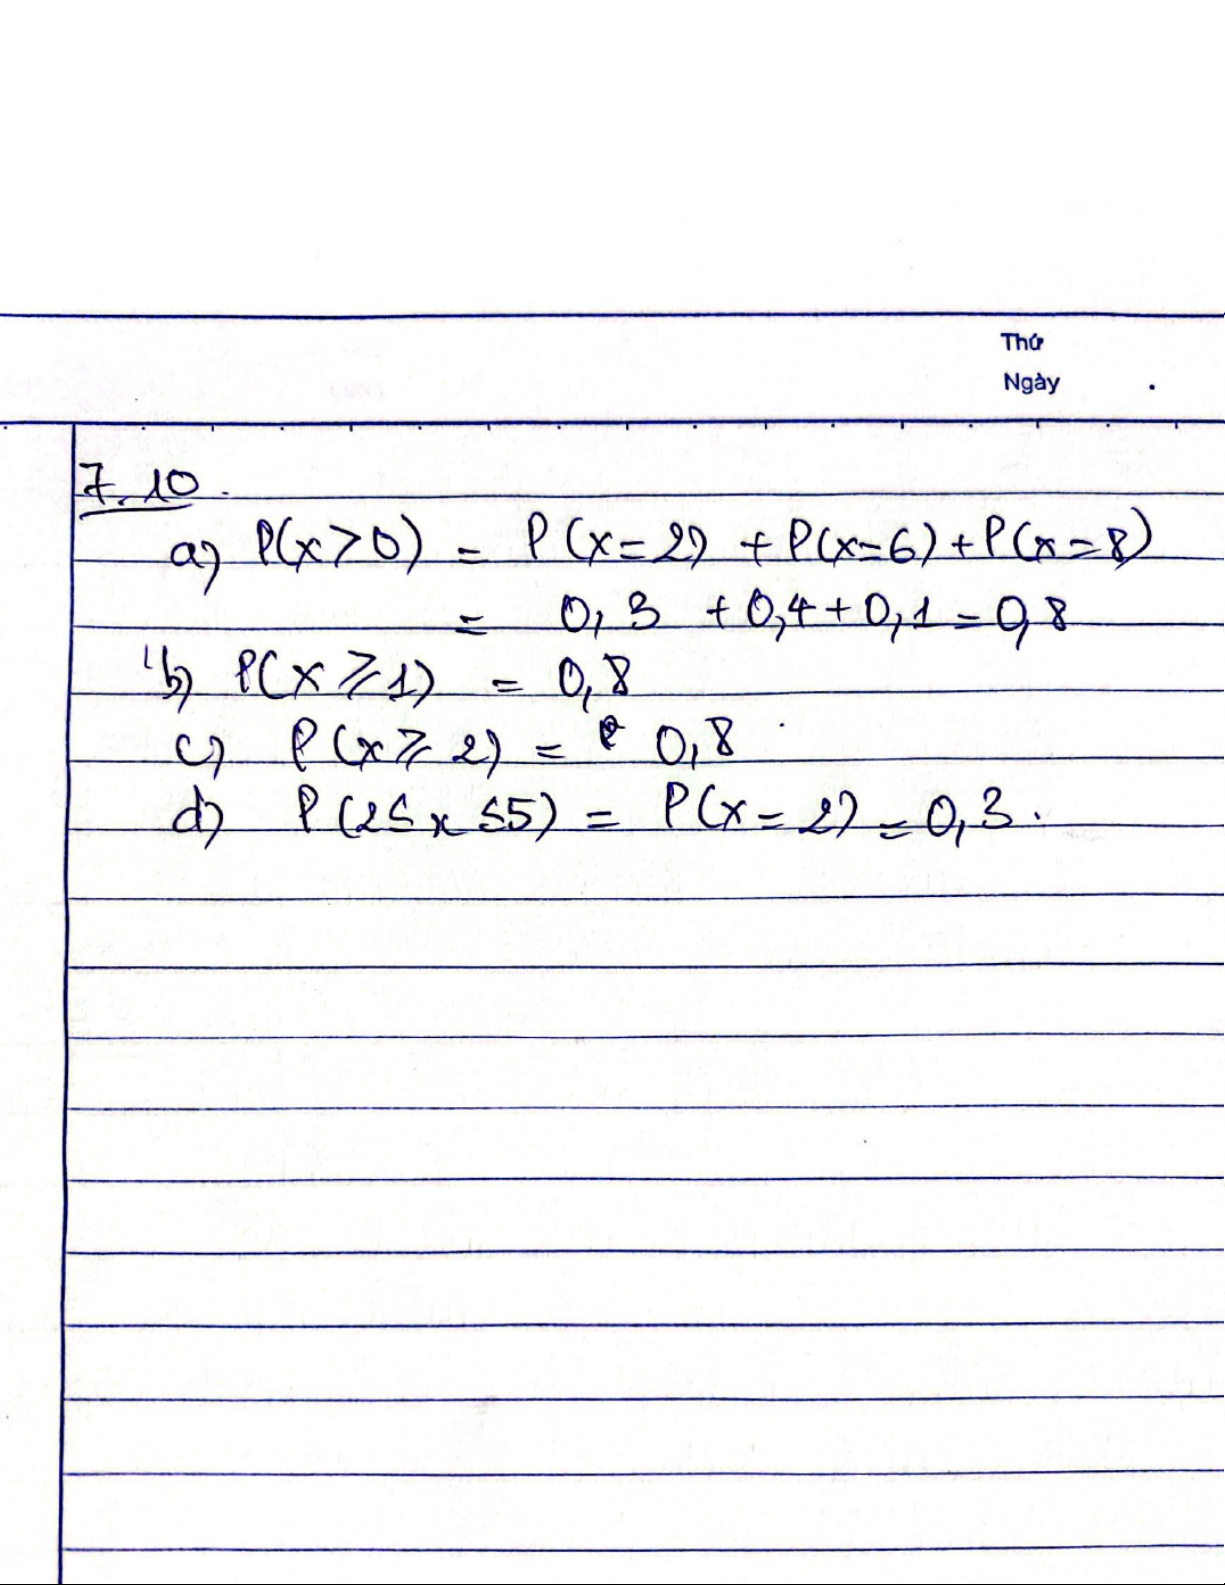 Thứ
Ngày
7.10.
a) P(x>0) = P(x=2) + P(x=6) + P(x=8)
= 0,3 + 0,4 + 0,1 = 0,8
b) P(x⩾1) = 0,8
c) P(x⩾2) = 0,8
d) P(2≤x≤5) = P(x=2) = 0,3.